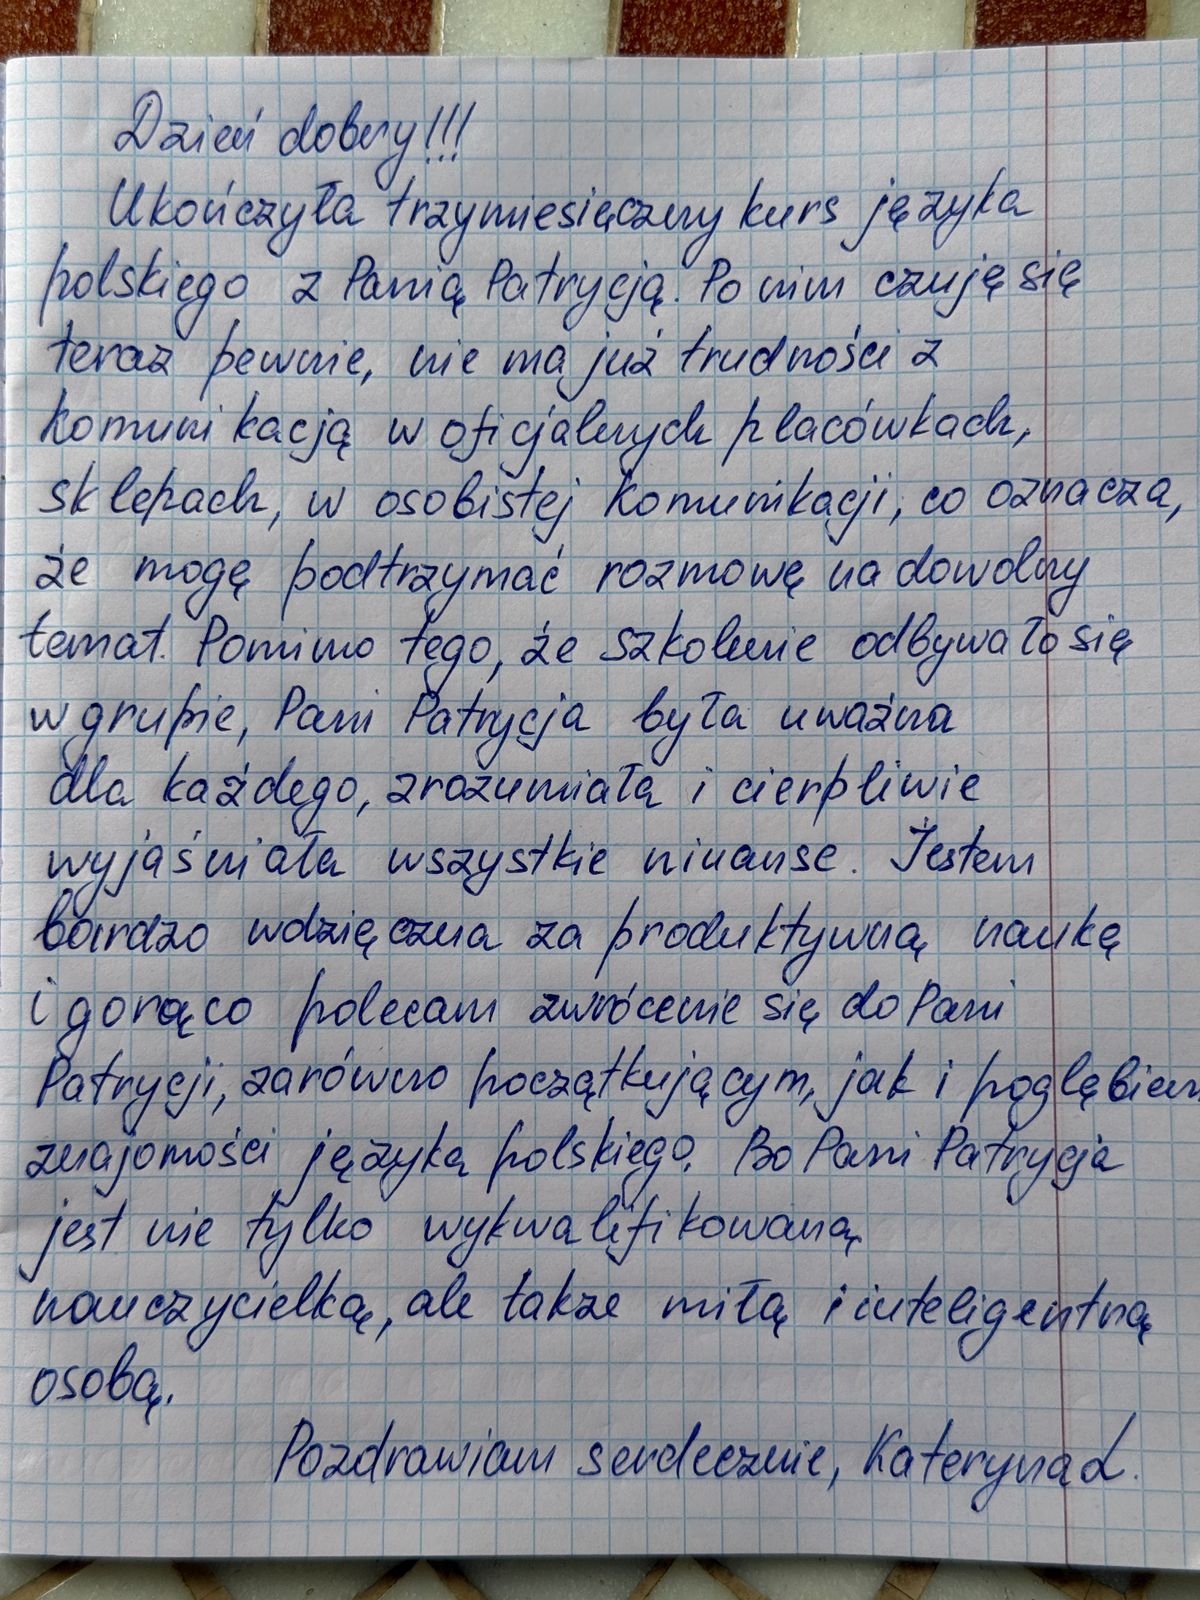 Dzień dobry!!!
Ukończyła trzymiesięczny kurs języka
polskiego z Panią Patrycją. Po nim czuję się
teraz pewnie, nie ma już trudności z
komunikacją w oficjalnych placówkach,
sklepach, w osobistej komunikacji, co oznacza,
że mogę podtrzymać rozmowę na dowolny
temat. Pomimo tego, że szkolenie odbywało się
w grupie, Pani Patrycja była uważna
dla każdego, zrozumiała i cierpliwie
wyjaśniała wszystkie niuanse. Jestem
bardzo wdzięczna za produktywną naukę
i gorąco polecam zwrócenie się do Pani
Patrycji, zarówno początkującym, jak i pogłębien
znajomości języka polskiego. Bo Pani Patrycja
jest nie tylko wykwalifikowaną
nauczycielką, ale także miłą i inteligentną
osobą.
Pozdrawiam serdecznie, Kateryna L.